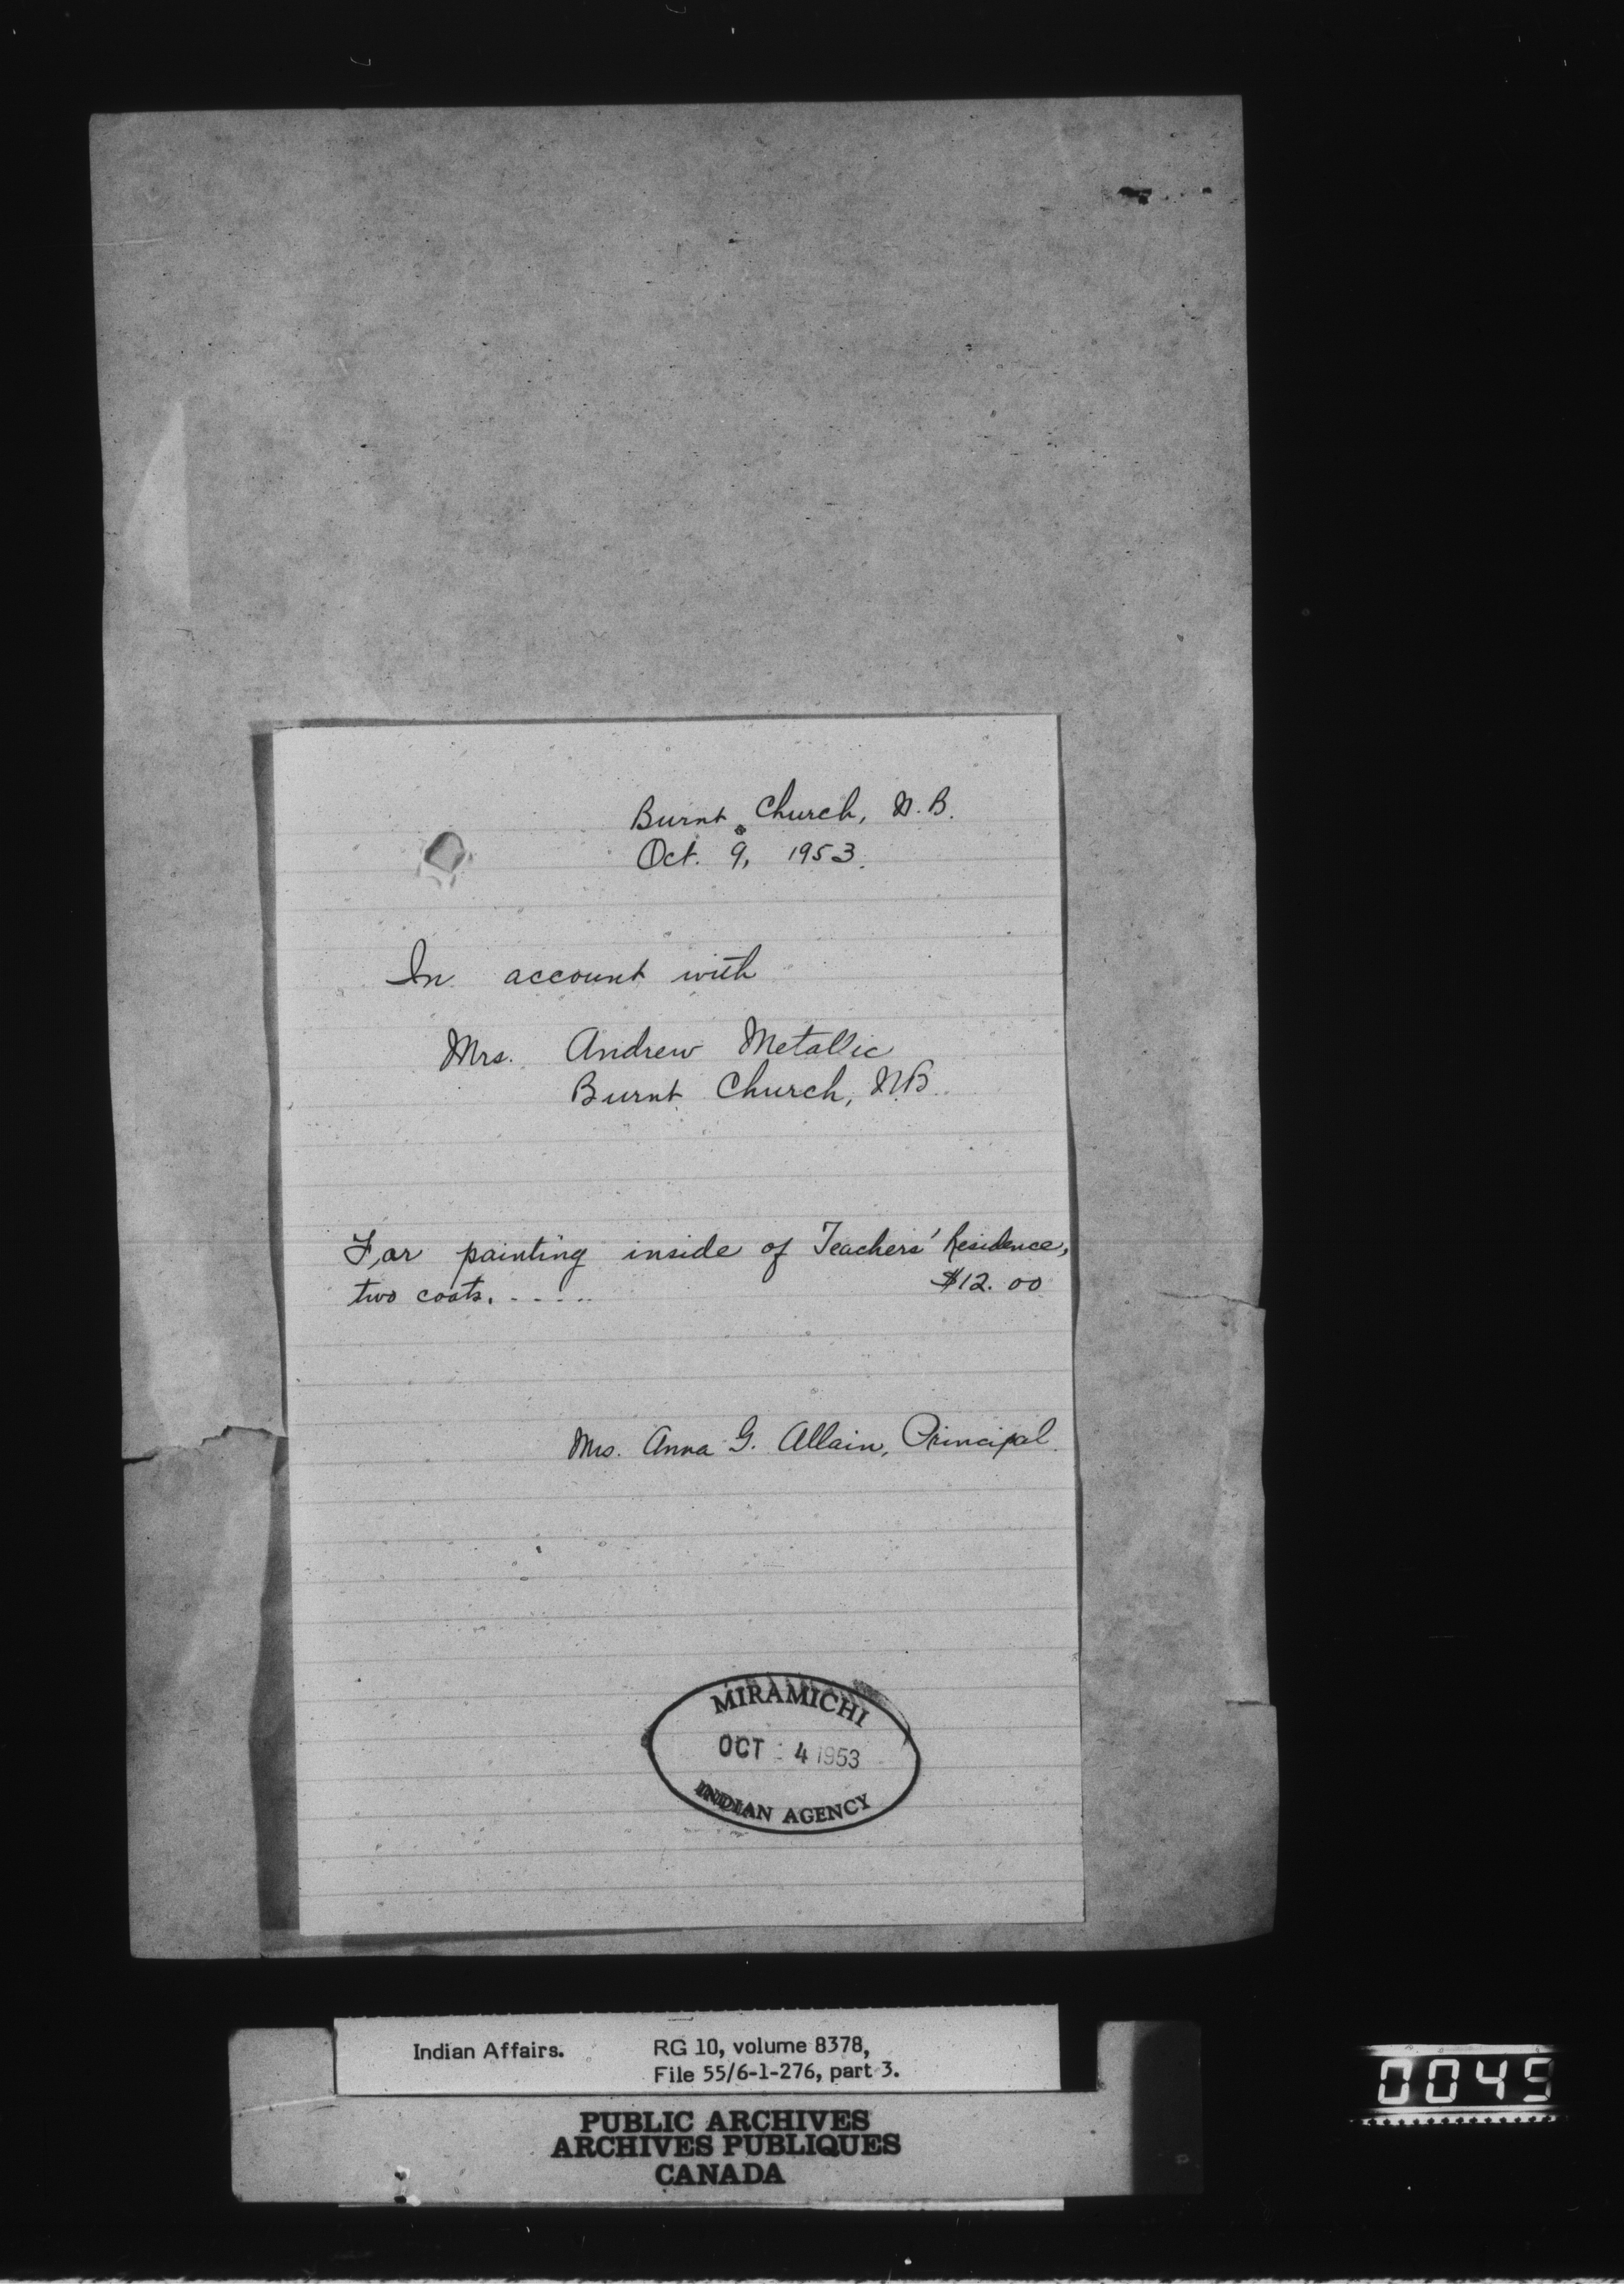 Burnt Church, N.B.
Oct. 9, 1953.
In account with
Mrs. Andrew Metallic
Burnt Church, N.B.
For painting inside of Teachers' Residence,
two coats. - - - - - $12.00
Mrs. Anna G. Allain, Principal.
MIRAMICHI
OCT 4 1953
INDIAN AGENCY
Indian Affairs. RG 10, volume 8378,
File 55/6-1-276, part 3.
PUBLIC ARCHIVES
ARCHIVES PUBLIQUES
CANADA
0045